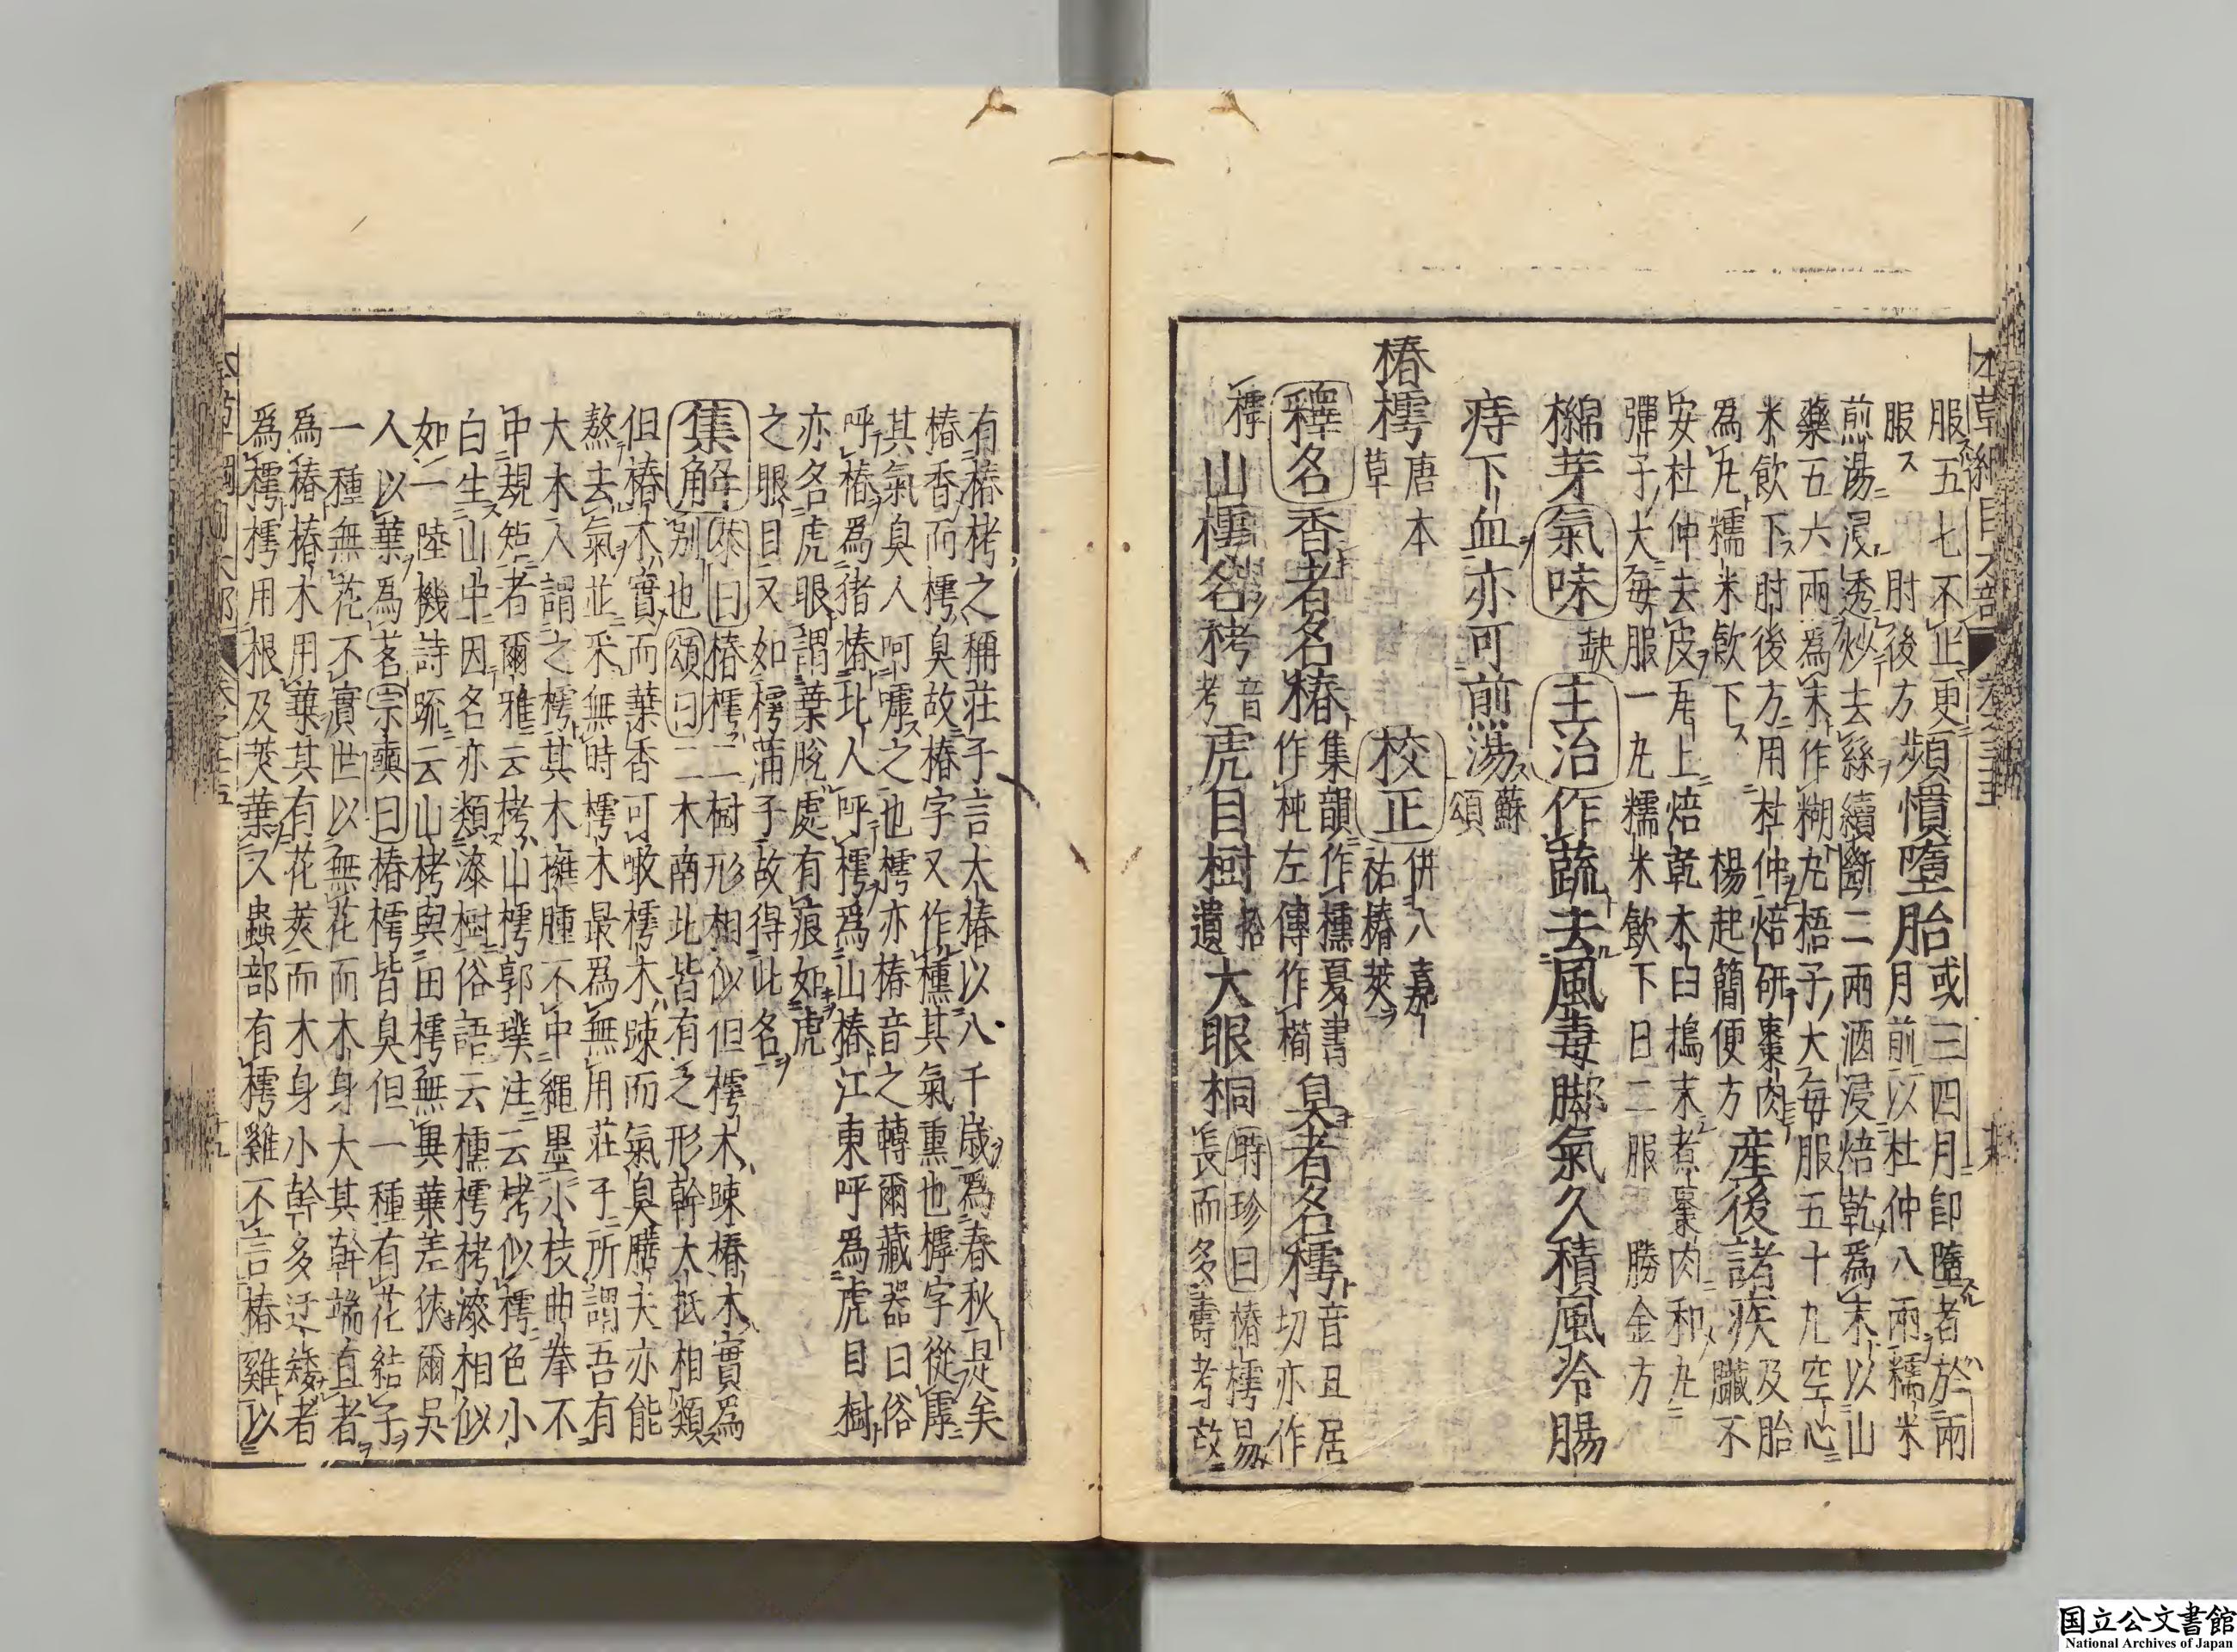 本草綱目木部 卷之三十五
服五七不止更
服 肘後方 頻慣墮胎 或三四月即墮者於兩月前以杜仲八兩糯米
煎湯浸透炒去絲續斷二兩酒浸焙乾爲末以山
藥五六兩爲末作糊丸梧子大每服五十丸空心
米飲下 肘後方用杜仲焙研棗肉
爲丸糯米飲下 楊起簡便方 產後諸疾 及胎臟不
安杜仲去皮瓦上焙乾木臼搗末煮棗肉和丸
彈子大每服一丸糯米飲下日二服 勝金方
檰芽 氣味 缺 主治 作蔬去風毒脚氣久積風冷腸
痔下血亦可煎湯 蘇頌
椿樗 唐本草 校正 併入嘉祐椿莢
釋名 香者名椿 集韻作櫄夏書作杶左傳作橁 臭者名樗 音丑居切亦作
㯉 山樗名栲 音考 虎目樹 拾遺 大眼桐 時珍曰椿樗易長而多壽考故
有椿栲之稱莊子言大椿以八千歲爲春秋是矣
椿香而樗臭故椿字又作櫄其氣熏也㯉字從虖
其氣臭人呵嘑之也樗亦椿音之轉爾藏器曰俗
呼椿爲猪椿北人呼樗爲山椿江東呼爲虎目樹
亦名虎眼謂葉脫處有痕如虎
之眼目又如樗蒲子故得此名
集解 恭曰椿樗二樹形相似但樗木踈椿木實爲
別也頌曰二木南北皆有之形幹大抵相類
但椿木實而葉香可噉樗木踈而氣臭膳夫亦能
熬去氣並采無時樗木最爲無用莊子所謂吾有
大木人謂之樗其木擁腫不中繩墨小枝曲拳不
中規矩者爾雅云栲山樗郭璞注云栲似樗色小
白生山中因名亦類漆樹俗語云櫄樗栲漆相似
如一陸機詩疏云山栲與田樗無異葉差狹爾吳
人以葉爲茗宗奭曰椿樗皆臭但一種有花結子
一種無花不實世以無花而木身大其幹端直者
爲椿椿木用葉其有花莢而木身小幹多迂矮者
爲樗樗用根及莢葉又蟲部有樗雞不言椿雞以
国立公文書館
National Archives of Japan